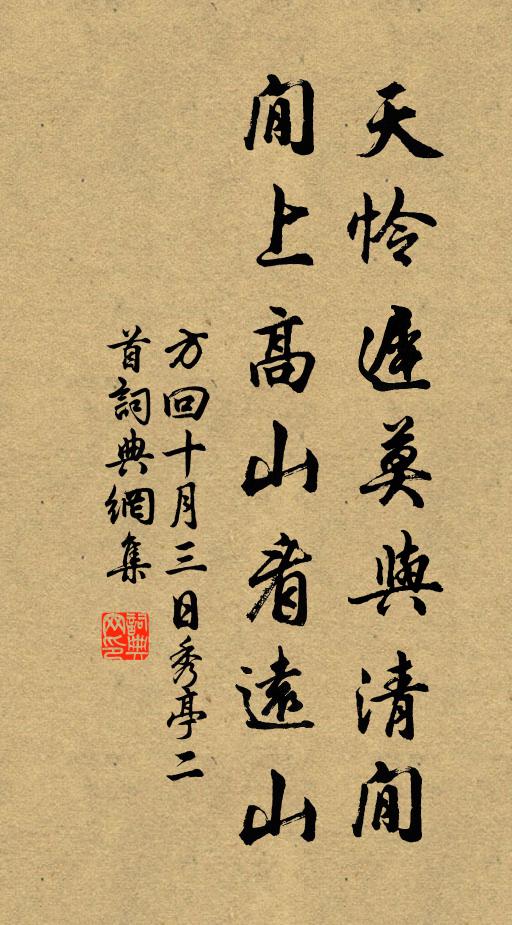 天怜遲莫與清閒
閒上高山看遠山
方回十月三日秀亭二
首詞典網集
詞典
網印